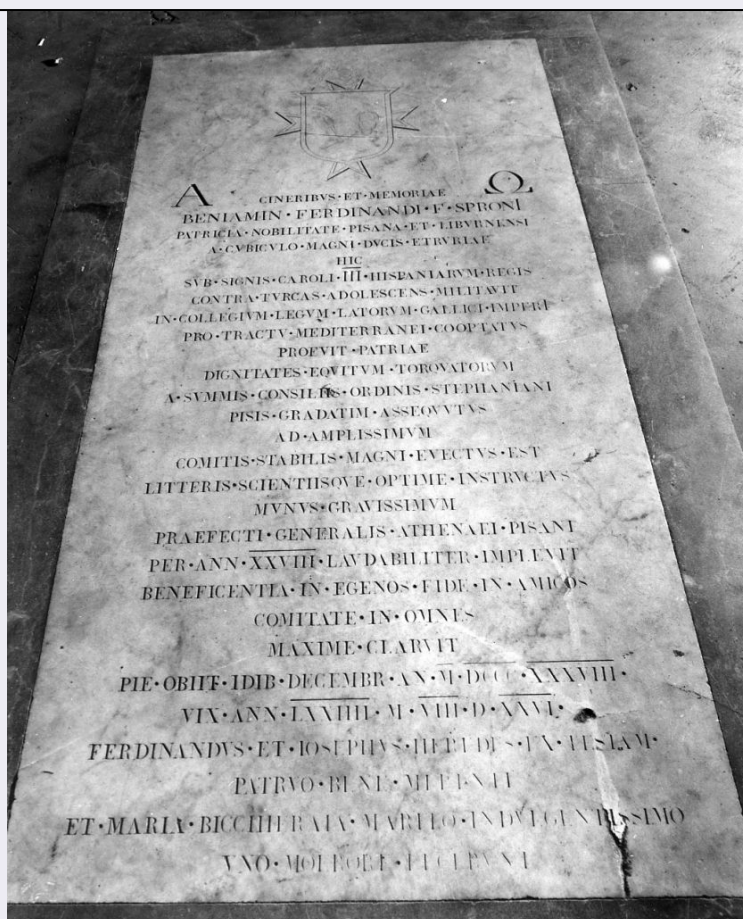 Α Ω
CINERIBVS·ET·MEMORIAE
BENIAMIN·FERDINANDI·F·SPRONI
PATRICIA·NOBILITATE·PISANA·ET·LIBVRNENSI
A·CVBICVLO·MAGNI·DVCIS·ETRVRIAE
HIC
SVB·SIGNIS·CAROLI·III·HISPANIARVM·REGIS
CONTRA·TVRCAS·ADOLESCENS·MILITAVIT
IN·COLLEGIVM·LEGVM·LATORVM·GALLICI·IMPERI
PRO·TRACTV·MEDITERRANEI·COOPTATVS
PROFVIT·PATRIAE
DIGNITATES·EQVITVM·TORQVATORVM
A·SVMMIS·CONSILIIS·ORDINIS·STEPHANIANI
PISIS·GRADATIM·ASSEQVVTVS
AD·AMPLISSIMVM
COMITIS·STABILIS·MAGNI·EVECTVS·EST
LITTERIS·SCIENTIISQVE·OPTIME·INSTRVCTVS
MVNVS·GRAVISSIMVM
PRAEFECTI·GENERALIS·ATHENAEI·PISANI
PER·ANN·XXVIII·LAVDABILITER·IMPLEVIT
BENEFICENTIA·IN·EGENOS·FIDE·IN·AMICOS
COMITATE·IN·OMNES
MAXIME·CLARVIT
PIE·OBIIT·IDIB·DECEMBR·AN·M·DCCC·XXXVIII·
VIX·ANN·LXXIIII·M·VIII·D·XXVI·
FERDINANDVS·ET·IOSEPHVS·HEREDES·EX·TESTAM·
PATRVO·BENE·MERENTI
ET·MARIA·BICCHIERAIA·MARITO·INDVLGENTISSIMO
VNO·MOERORE·FECERVNT